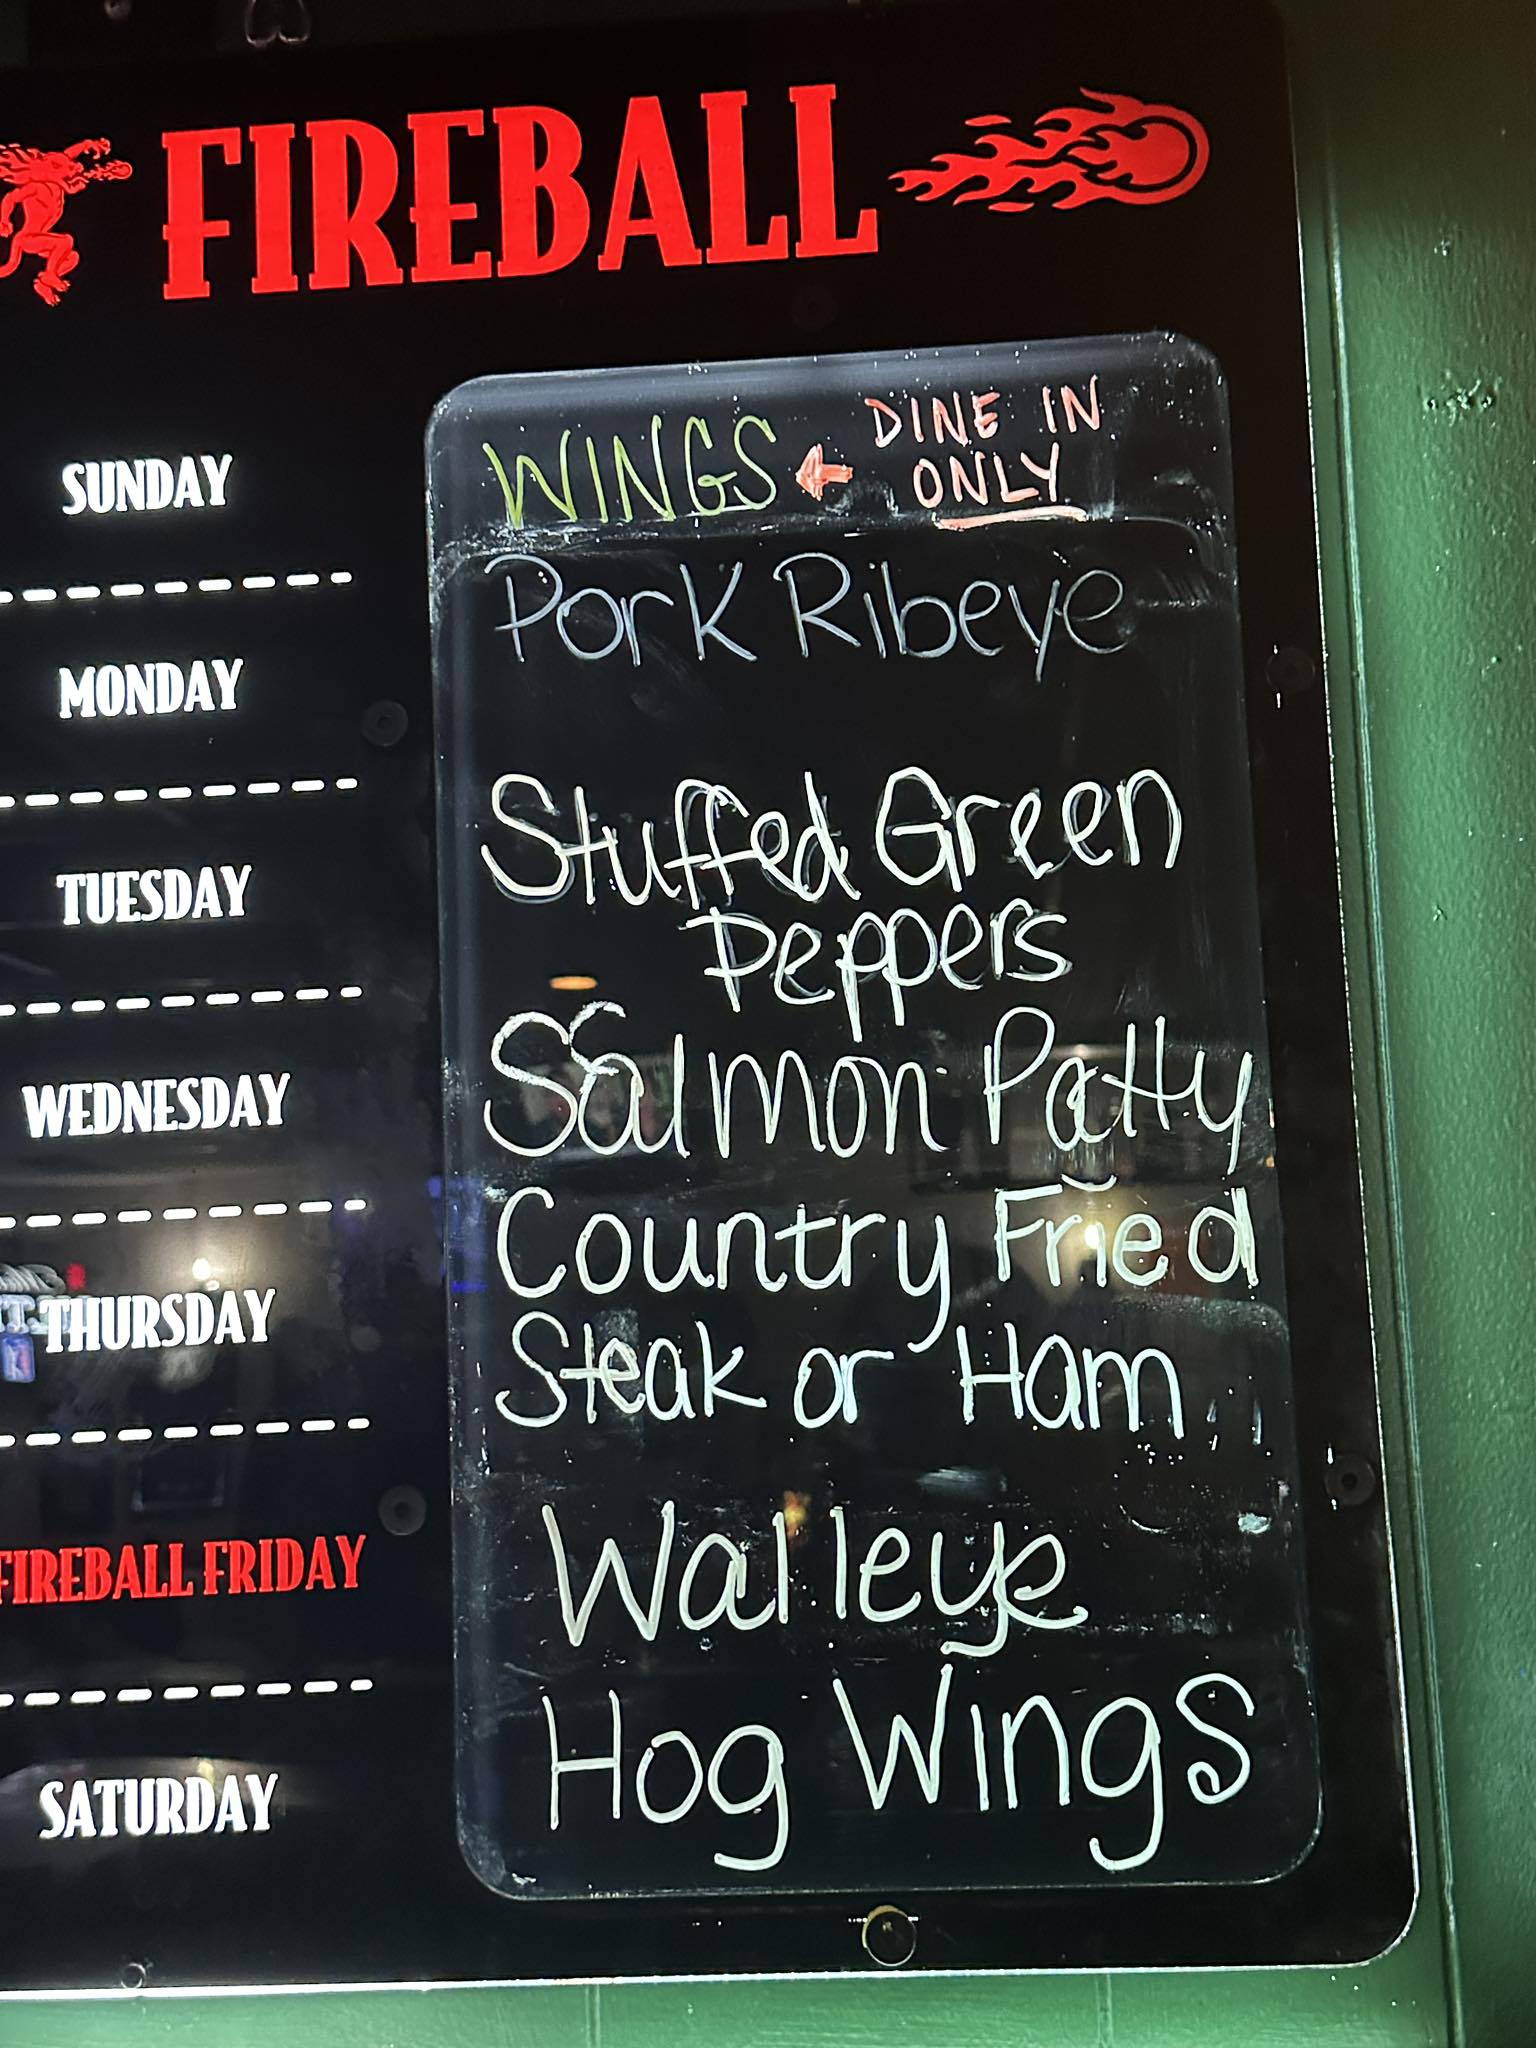 FIREBALL
SUNDAY
WINGS DINE IN
ONLY
MONDAY
Pork Ribeye
TUESDAY
Stuffed Green
Peppers
WEDNESDAY
Salmon Patty
THURSDAY
Country Fried
Steak or Ham
FIREBALL FRIDAY
Walleye
SATURDAY
Hog Wings